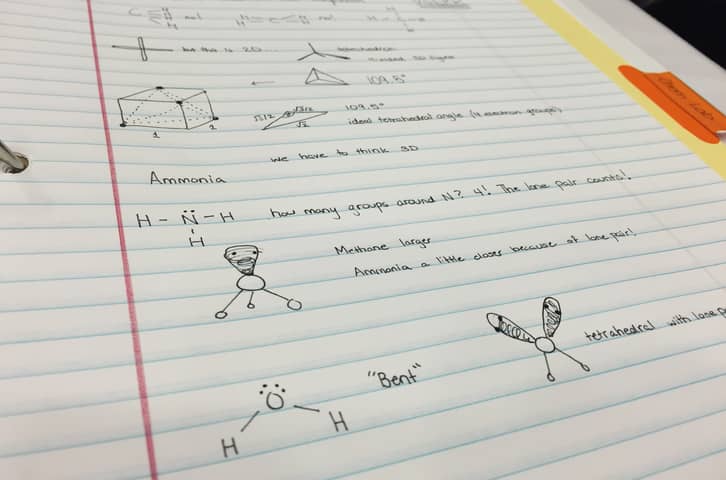 but this is 2D
tetrahedron
109.5°
109.5°
ideal tetrahedral angle (4 electron groups)
√3/2
√2
1
we have to think 3D
Ammonia
H - N̈ - H
H
how many groups around N? 4! The lone pair counts!
Methane larger
Ammonia a little closer because of lone pair!
tetrahedral with lone
"Bent"
O
H
H